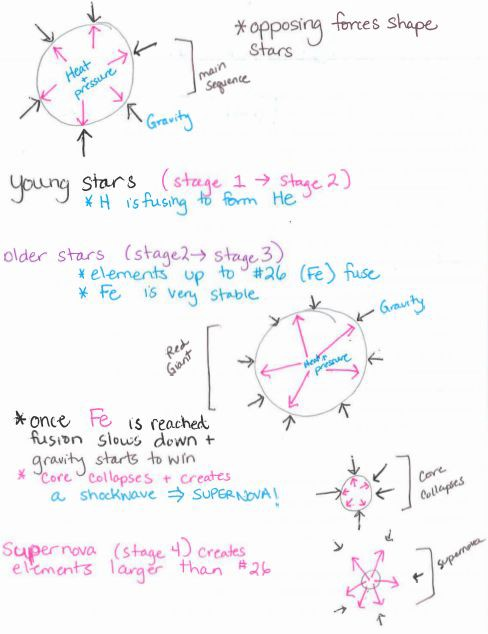 * opposing forces shape
stars
Heat
+
pressure
main
sequence
Gravity
young stars (stage 1 → stage 2)
* H is fusing to form He
older stars (stage 2 → stage 3)
* elements up to #26 (Fe) fuse
* Fe is very stable
Gravity
Red
Giant
Heat +
pressure
* once Fe is reached
fusion slows down +
gravity starts to win
* core collapses + creates
a shockwave ⇒ SUPERNOVA!
Core
collapses
Supernova (stage 4) creates
elements larger than #26
supernova